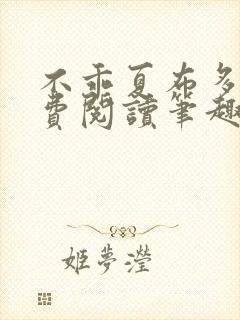 不乖夏布多
費閱讀筆趣
姬夢瀅